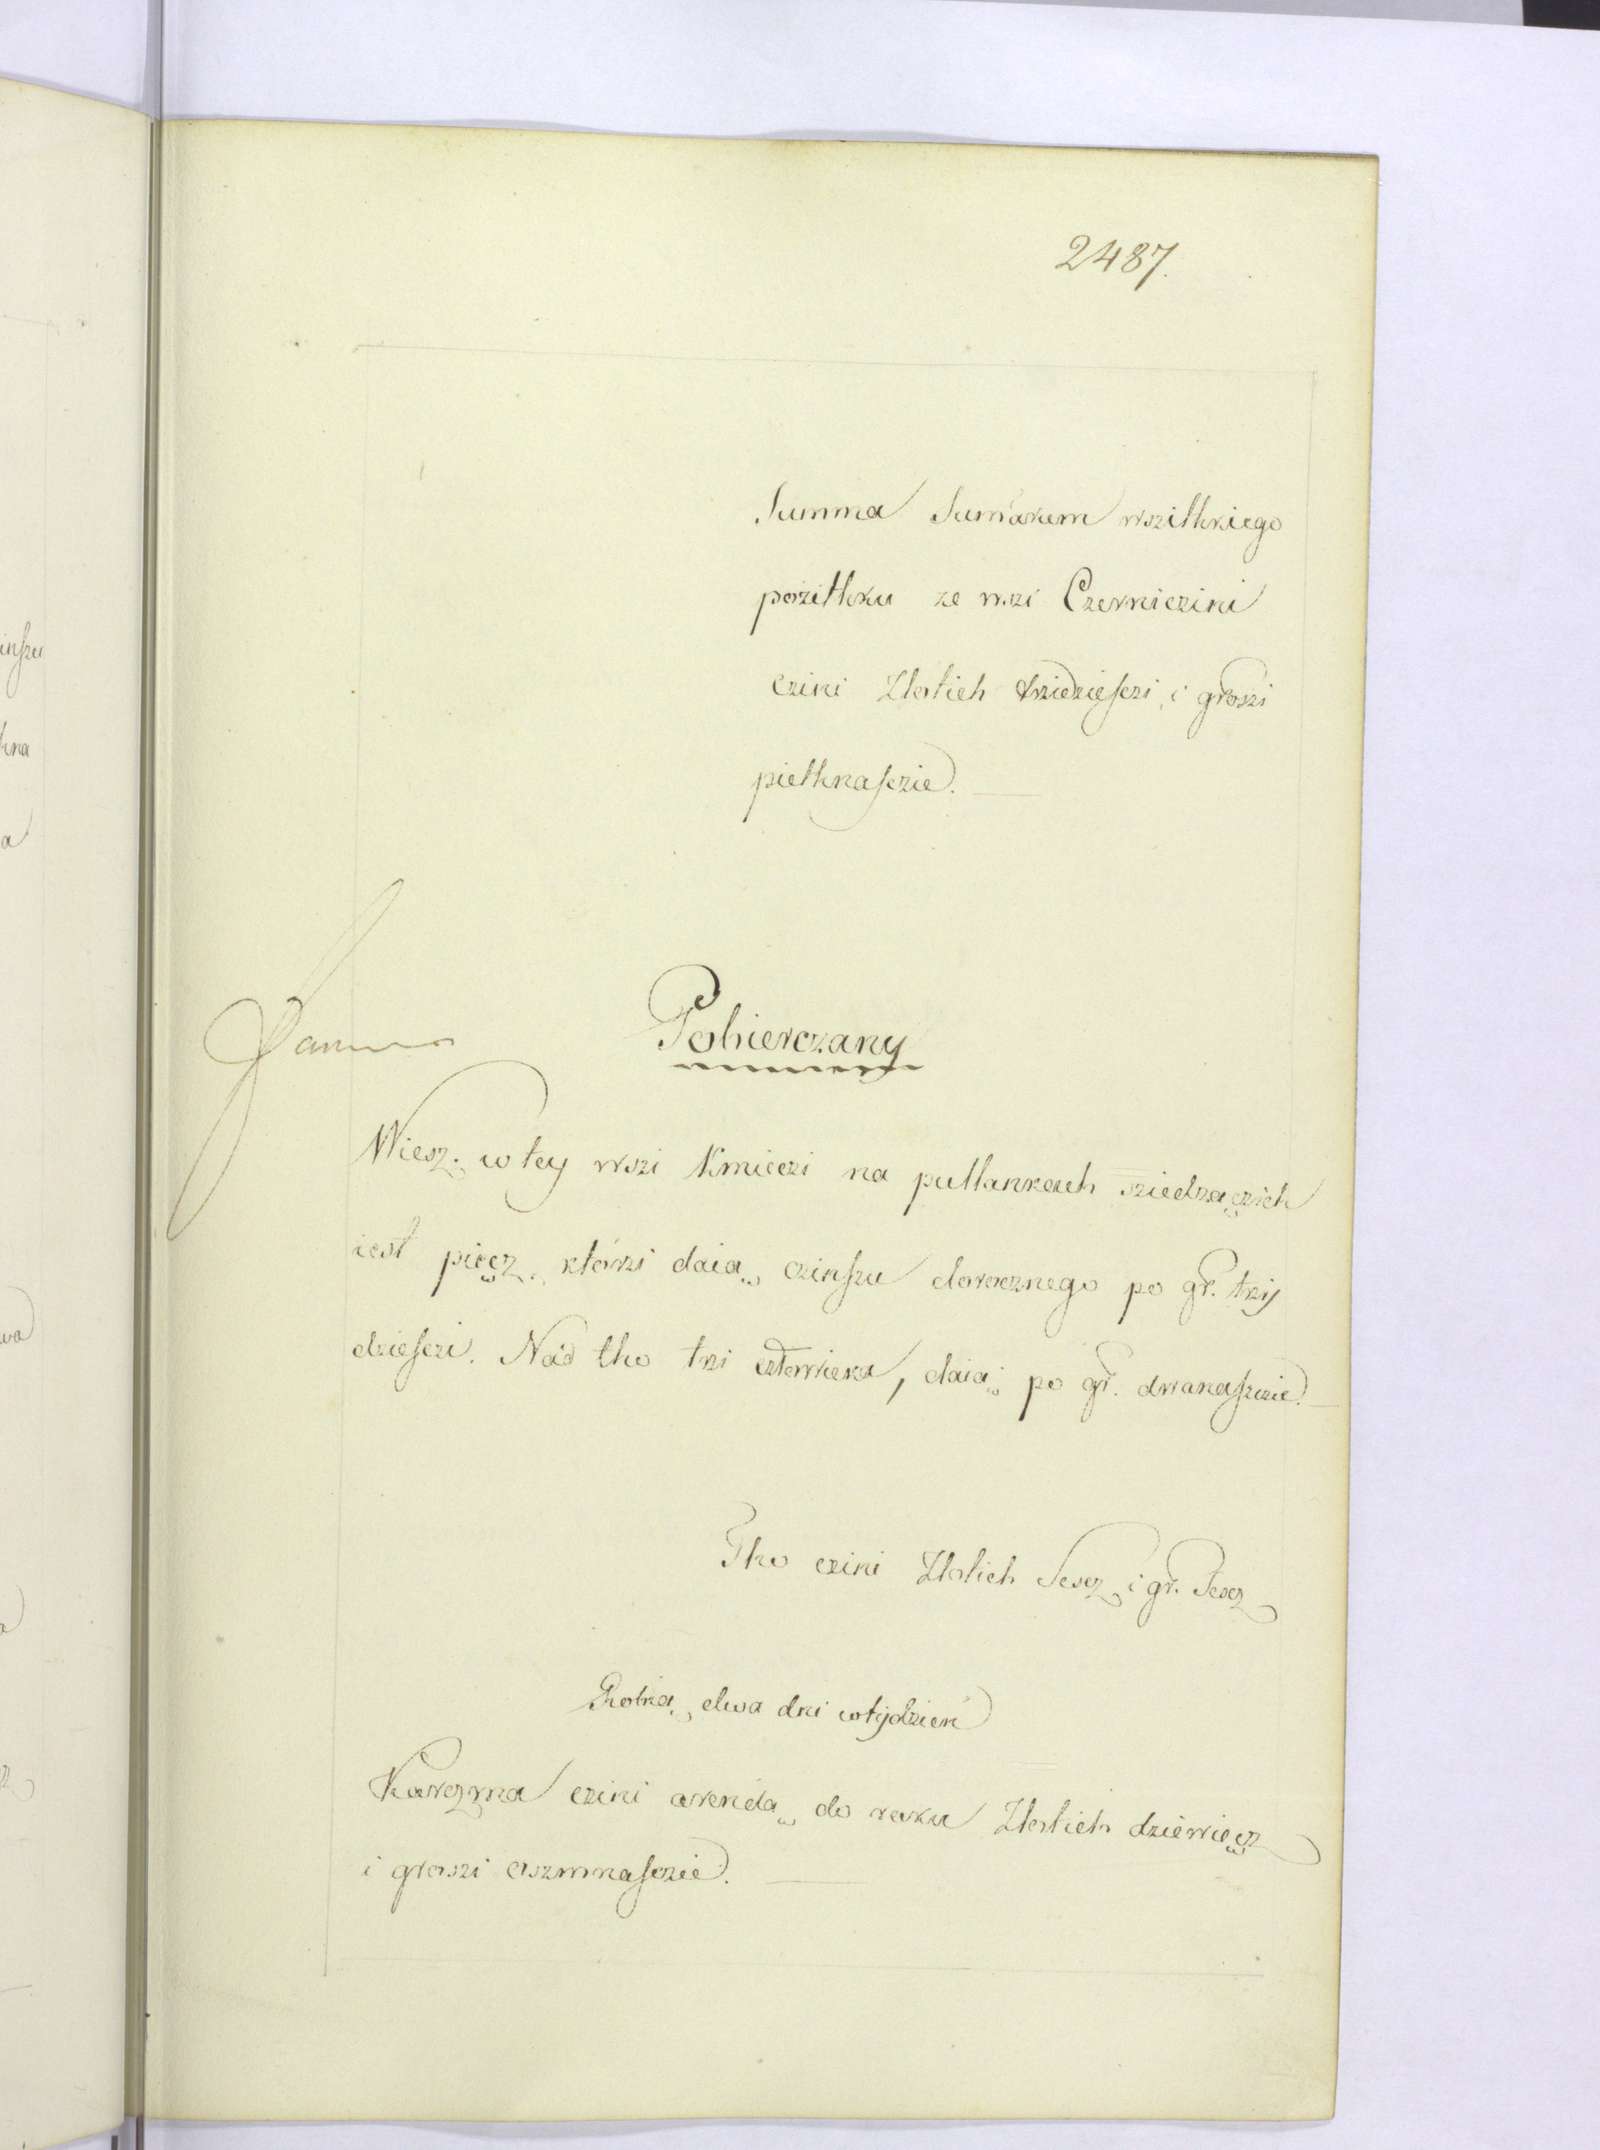 2487.
Summa Sumarum wszitkiego
pozitku ze wszi Czerniczini
czini Zlotich trzidziesczi i groszi
pietknasczie.
Pobierczany
Wiesz. w tey wszi Kmieczi na pullankach sziedzączich
iest pięcz. którzi daią czinszu dorocznego po gr. trzy
dziesczi. Nád tho trzi człowieka, daią po gr. dwanasczie.
Tho czini Zlotich Sescz i gr. Sescz
Robią dwa dni w tydzien
Karczma czini arendą do roku Zlotich dziewięcz
i groszi oszmnasczie.